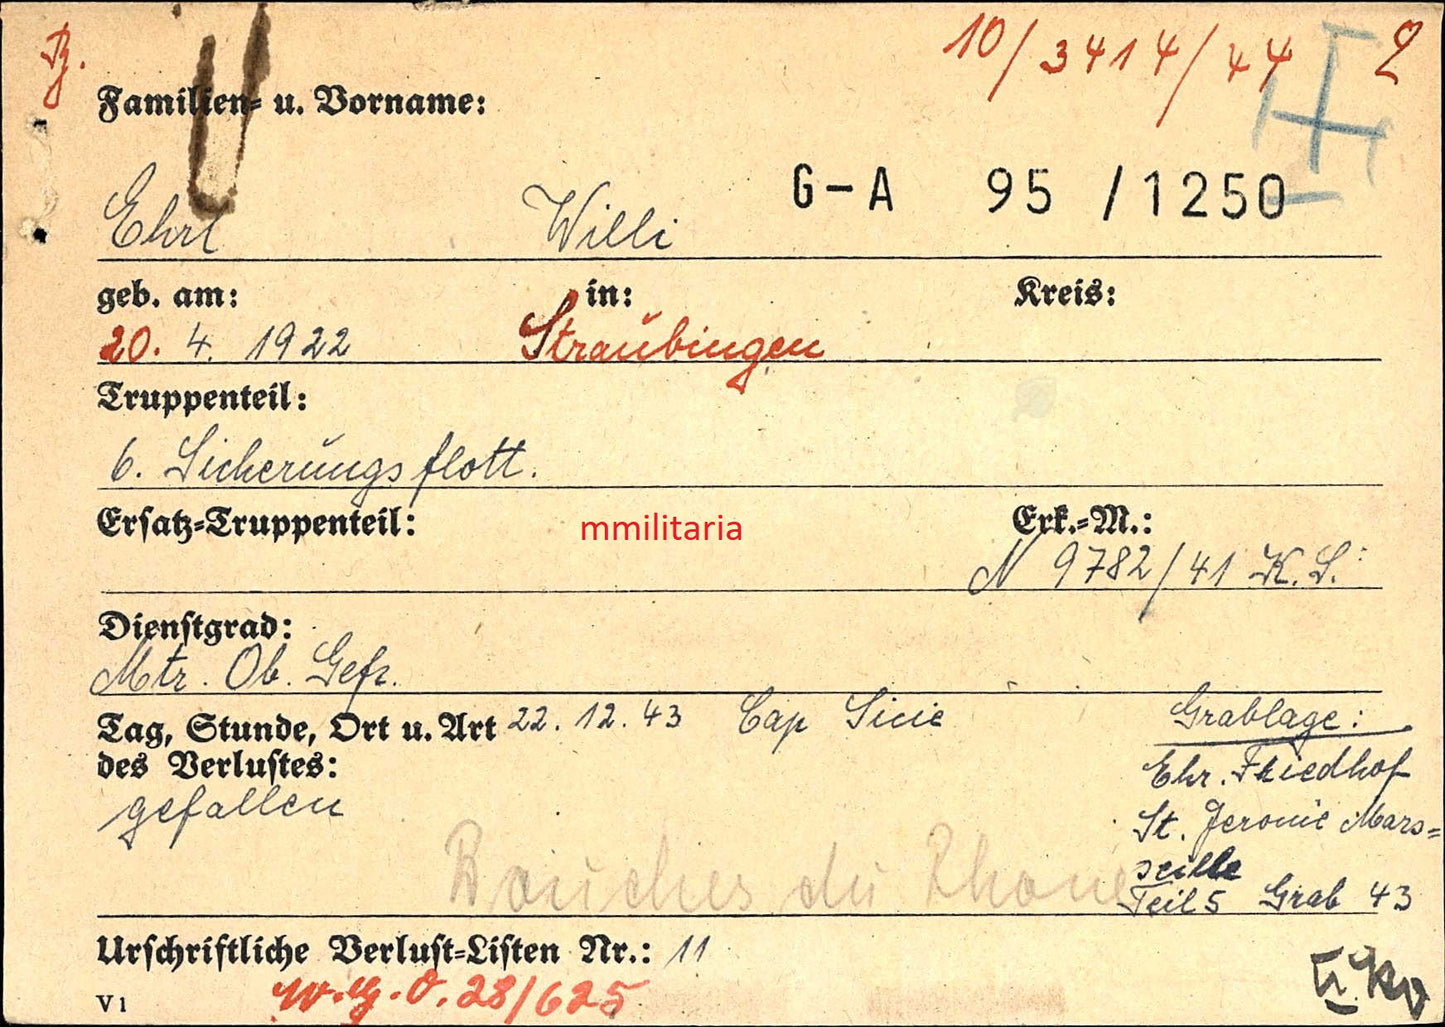 10/3414/44 2
Familien- u. Vorname:
G-A 95 /1250
Ehrl Willi
geb. am: in: Kreis:
20. 4. 1922 Straubingen
Truppenteil:
6. Sicherungsflott.
Ersatz-Truppenteil: mmilitaria Erk.-M.:
N 9782/41 K. S.
Dienstgrad:
Mtr. Ob. Gefr.
Tag, Stunde, Ort u. Art 22. 12. 43 Cap Sicie
des Verlustes:
gefallen
Grablage:
Ehr. Friedhof
St. Jeromie Mars=
seille
Teil 5 Grab 43
Bouches du Rhone
Urschriftliche Verlust-Listen Nr.: 11
V 1 W.G.O. 28/625